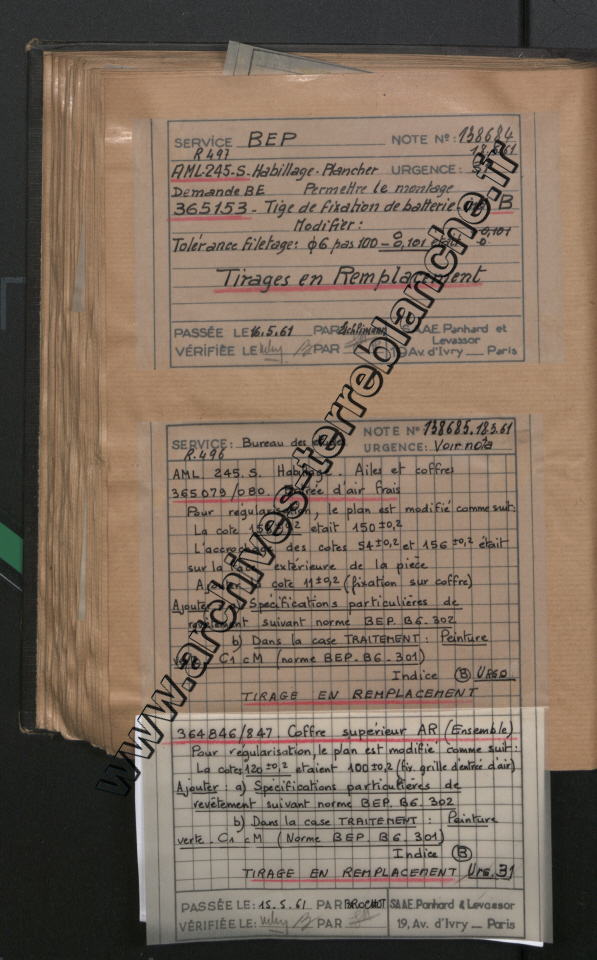 SERVICE BEP NOTE N°: 138684
R 497 18.5.61
AML-245-S-Habillage-Plancher URGENCE:
Demande BE Permettre le montage
365153 - Tige de fixation de batterie B
Modifier:
Tolérance filetage: φ6 pas 100 - 0, 101 était 0,101
Tirages en Remplacement
PASSÉE LE 16.5.61 PAR S.A.A.E. Panhard et
Levassor
VÉRIFIÉE LE PAR 19 Av. d'Ivry — Paris
NOTE N° 138685.18.5.61
SERVICE: Bureau des
R.496 URGENCE: Voir nota
AML 245.S. Habillage. Ailes et coffres
365079/080. Entrée d'air frais
Pour régularisation, le plan est modifié comme suit:
La cote était 150±0,2
L'accrochage des cotes 54±0,2 et 156±0,2 était
sur la face extérieure de la pièce
Ajouter cote 11±0,2 (fixation sur coffre)
Ajouter a) Spécifications particulières de
revêtement suivant norme BEP. B6.302
b) Dans la case TRAITEMENT: Peinture
verte C1 cM (norme BEP-B6-301)
Indice (B) Urg.0
TIRAGE EN REMPLACEMENT
364846/847 Coffre supérieur AR (Ensemble)
Pour régularisation, le plan est modifié comme suit:
La cotes 120±0,2 etaient 100±0,2 (fix. grille d'entrée d'air)
Ajouter: a) Spécifications particulières de
revêtement suivant norme BEP. B6.302
b) Dans la case TRAITEMENT: Peinture
verte. C1 cM (Norme BEP B6.301)
Indice (B)
TIRAGE EN REMPLACEMENT Urg.31
PASSÉE LE: 15.5.61 PAR BROCHOT S.A.A.E. Panhard & Levassor
VÉRIFIÉE LE: PAR 19, Av. d'Ivry — Paris
www.archives-terreblanche.fr